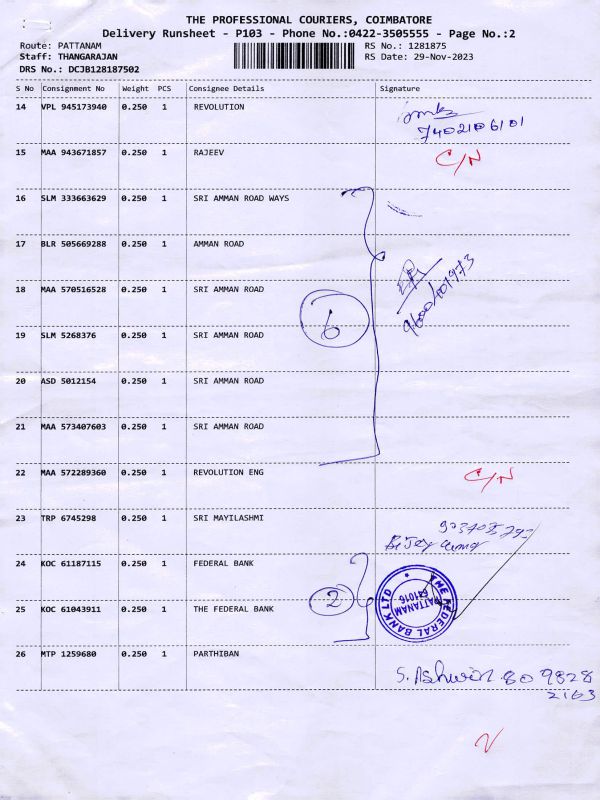 THE PROFESSIONAL COURIERS, COIMBATORE
Delivery Runsheet - P103 - Phone No.:0422-3505555 - Page No.:2
Route: PATTANAM RS No.: 1281875
Staff: THANGARAJAN RS Date: 29-Nov-2023
DRS No.: DCJB128187502
S No Consignment No Weight PCS Consignee Details Signature
14 VPL 945173940 0.250 1 REVOLUTION
7402106101
15 MAA 943671857 0.250 1 RAJEEV C/N
16 SLM 333663629 0.250 1 SRI AMMAN ROAD WAYS
17 BLR 505669288 0.250 1 AMMAN ROAD
18 MAA 570516528 0.250 1 SRI AMMAN ROAD
6
19 SLM 5268376 0.250 1 SRI AMMAN ROAD
20 ASD 5012154 0.250 1 SRI AMMAN ROAD
21 MAA 573407603 0.250 1 SRI AMMAN ROAD
22 MAA 572289360 0.250 1 REVOLUTION ENG C/N
23 TRP 6745298 0.250 1 SRI MAYILASHMI
24 KOC 61187115 0.250 1 FEDERAL BANK
2
THE FEDERAL BANK LTD
PATTANAM
641016
25 KOC 61043911 0.250 1 THE FEDERAL BANK
26 MTP 1259680 0.250 1 PARTHIBAN S. Ashwin 809828
2163